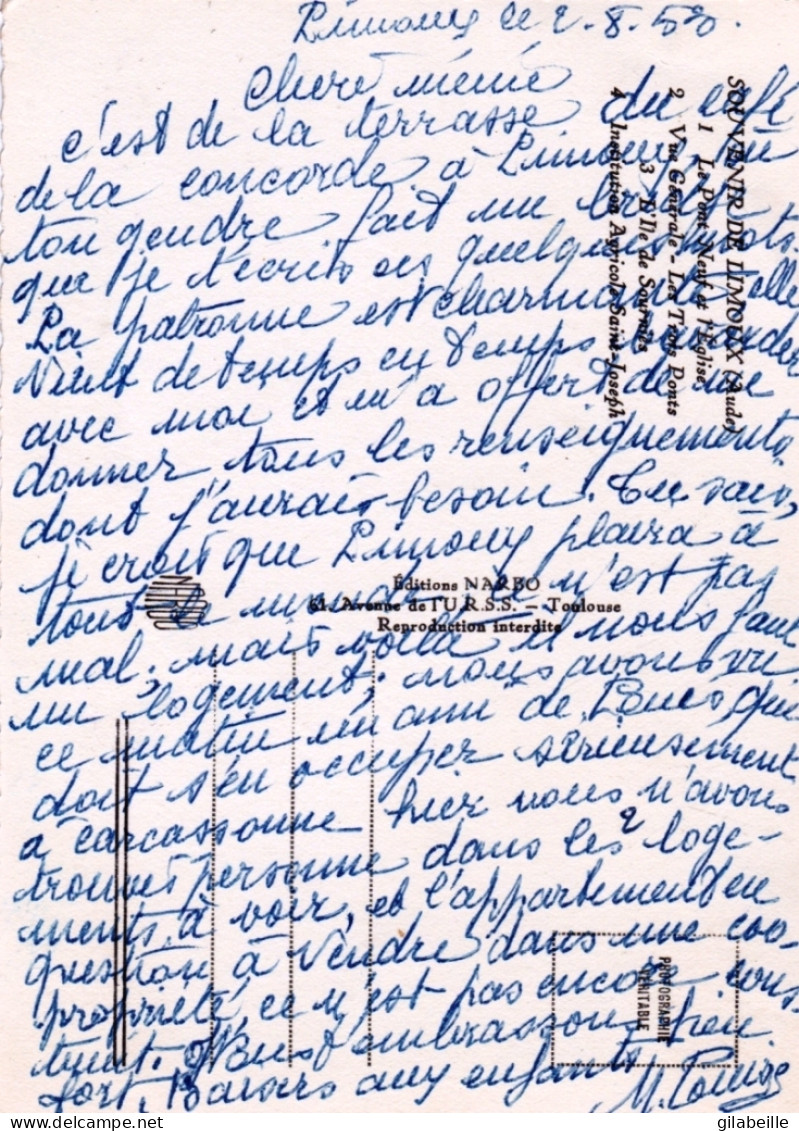 Limoux le 2.8.58.
Chère mémé
c'est de la terrasse du café
de la concorde à Limoux, où
ton gendre fait un
que je t'écris ces quelques mots.
La patronne est charmante elle
vient de temps en temps bavarder
avec moi et m'a offert de me
donner tous les renseignements
dont j'aurais besoin. Tu sais,
je crois que Limoux plaira à
tout le monde ce n'est pas
mal. mais voilà il nous faut
un logement; nous avons vu
ce matin un ami de que
doit s'en occuper sérieusement
à carcassonne hier nous n'avons
trouvé personne dans les 2 loge-
ments à voir, et l'appartement en
question à vendre dans une coo-
propriété, ce n'est pas encore cons-
truit. Nous t'embrassons bien
fort. Baisers aux enfants
M.
SOUVENIR DE LIMOUX (Aude)
1 Le Pont Neuf et l'Eglise
2 Vue Générale - Les Trois Ponts
3 L'Ile de Sournies
4 Institution Agricole Saint-Joseph
Éditions NARBO
61, Avenue de l'U.R.S.S. — Toulouse
Reproduction interdite
PHOTOGRAPHIE
VÉRITABLE
gilabeille